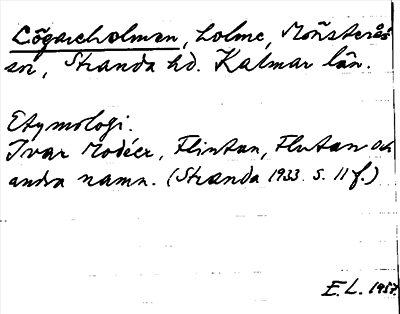 Lögareholmen, holme, Mönsterås
sn, Stranda hd. Kalmar län.
Etymologi.
Ivar Modéer, Flintan, Flutan och
andra namn. (Stranda 1933. S. 11 f.)
E.L. 1957.